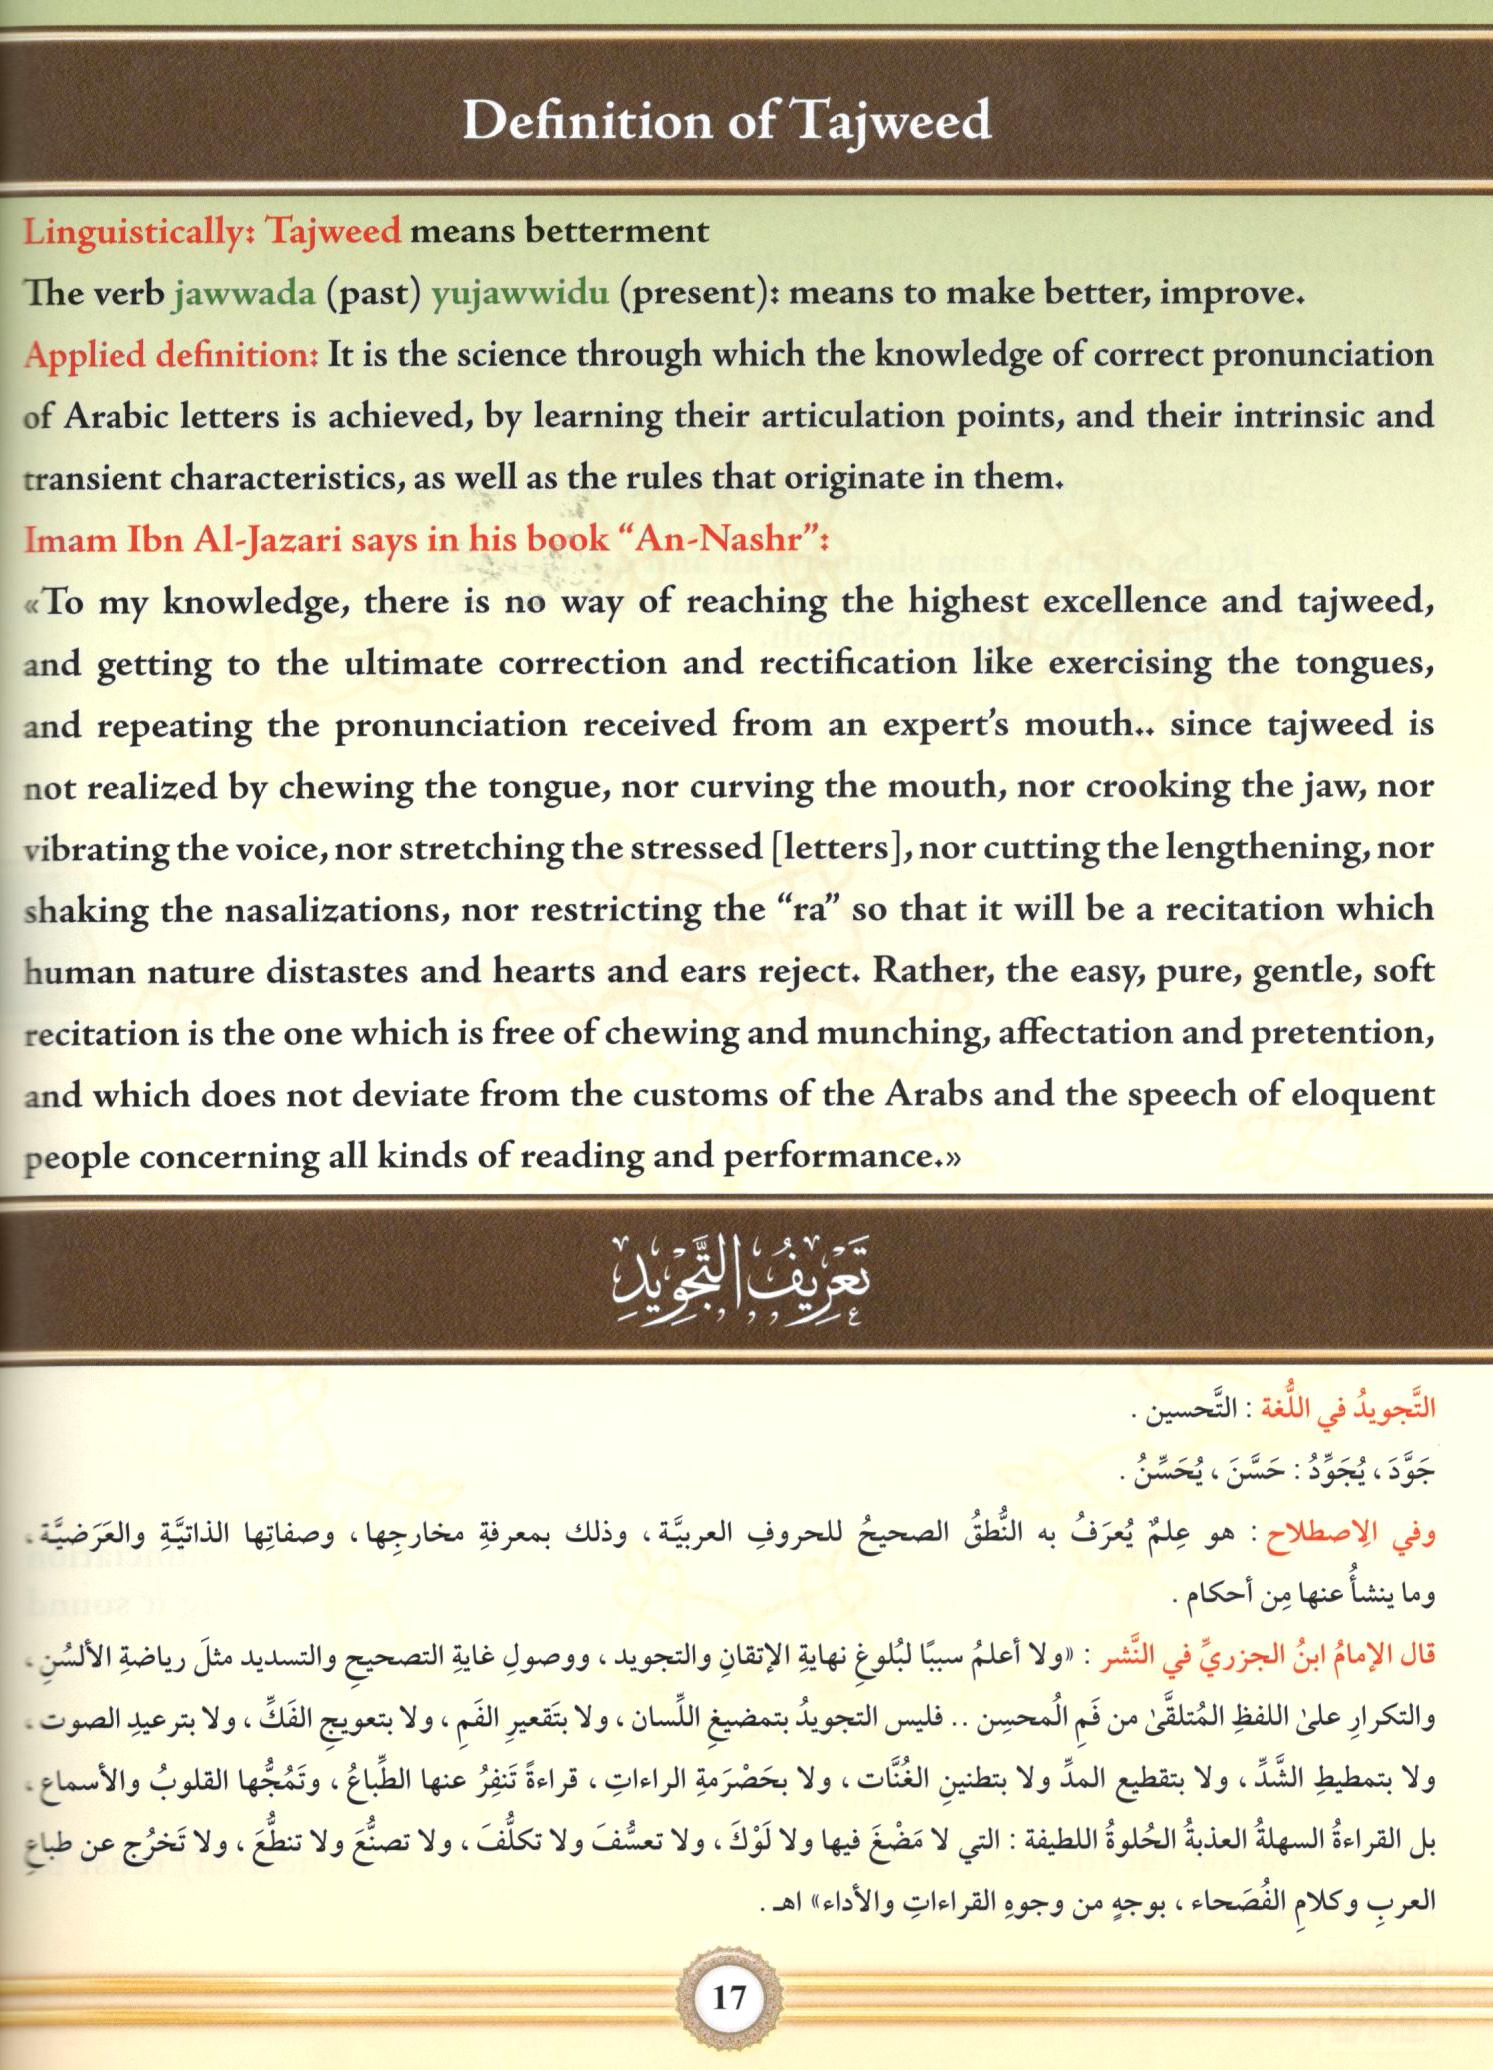 Definition of Tajweed
Linguistically: Tajweed means betterment
The verb jawwada (past) yujawwidu (present): means to make better, improve.
Applied definition: It is the science through which the knowledge of correct pronunciation
of Arabic letters is achieved, by learning their articulation points, and their intrinsic and
transient characteristics, as well as the rules that originate in them.
Imam Ibn Al-Jazari says in his book “An-Nashr”:
«To my knowledge, there is no way of reaching the highest excellence and tajweed,
and getting to the ultimate correction and rectification like exercising the tongues,
and repeating the pronunciation received from an expert’s mouth.. since tajweed is
not realized by chewing the tongue, nor curving the mouth, nor crooking the jaw, nor
vibrating the voice, nor stretching the stressed [letters], nor cutting the lengthening, nor
shaking the nasalizations, nor restricting the “ra” so that it will be a recitation which
human nature distastes and hearts and ears reject. Rather, the easy, pure, gentle, soft
recitation is the one which is free of chewing and munching, affectation and pretention,
and which does not deviate from the customs of the Arabs and the speech of eloquent
people concerning all kinds of reading and performance.»
تَعْرِيفُ التَّجْوِيدِ
التَّجويدُ في اللُّغة : التَّحسين .
جَوَّدَ ، يُجَوِّدُ : حَسَّنَ ، يُحَسِّنُ .
وفي الِاصطلاح : هو عِلمٌ يُعرَفُ به النُّطقُ الصحيحُ للحروفِ العربيَّة ، وذلك بمعرفةِ مخارجِها ، وصفاتِها الذاتيَّةِ والعَرَضيَّة ،
وما ينشأُ عنها مِن أحكام .
قال الإمامُ ابنُ الجزريِّ في النَّشر : «ولا أعلمُ سببًا لبُلوغِ نهايةِ الإتقانِ والتجويد ، ووصولِ غايةِ التصحيحِ والتسديد مثلَ رياضةِ الألسُنِ ،
والتكرارِ علىٰ اللفظِ المُتلقَّىٰ من فَمِ الُمحسِن .. فليس التجويدُ بتمضيغِ اللِّسان ، ولا بتَقعيرِ الفَمِ ، ولا بتعويجِ الفَكِّ ، ولا بترعيدِ الصوت ،
ولا بتمطيطِ الشَّدِّ ، ولا بتقطيع المدِّ ولا بتطنينِ الغُنَّات ، ولا بحَصْرَمةِ الراءاتِ ، قراءةً تَنفِرُ عنها الطِّباعُ ، وتَمُجُّها القلوبُ والأسماع ،
بل القراءةُ السهلةُ العذبةُ الحُلوةُ اللطيفة : التي لا مَضْغَ فيها ولا لَوْكَ ، ولا تعسُّفَ ولا تكلُّفَ ، ولا تصنُّعَ ولا تنطُّعَ ، ولا تَخرُج عن طباعِ
العربِ وكلامِ الفُصَحاء ، بوجهٍ من وجوهِ القراءاتِ والأداء» اهـ .
17